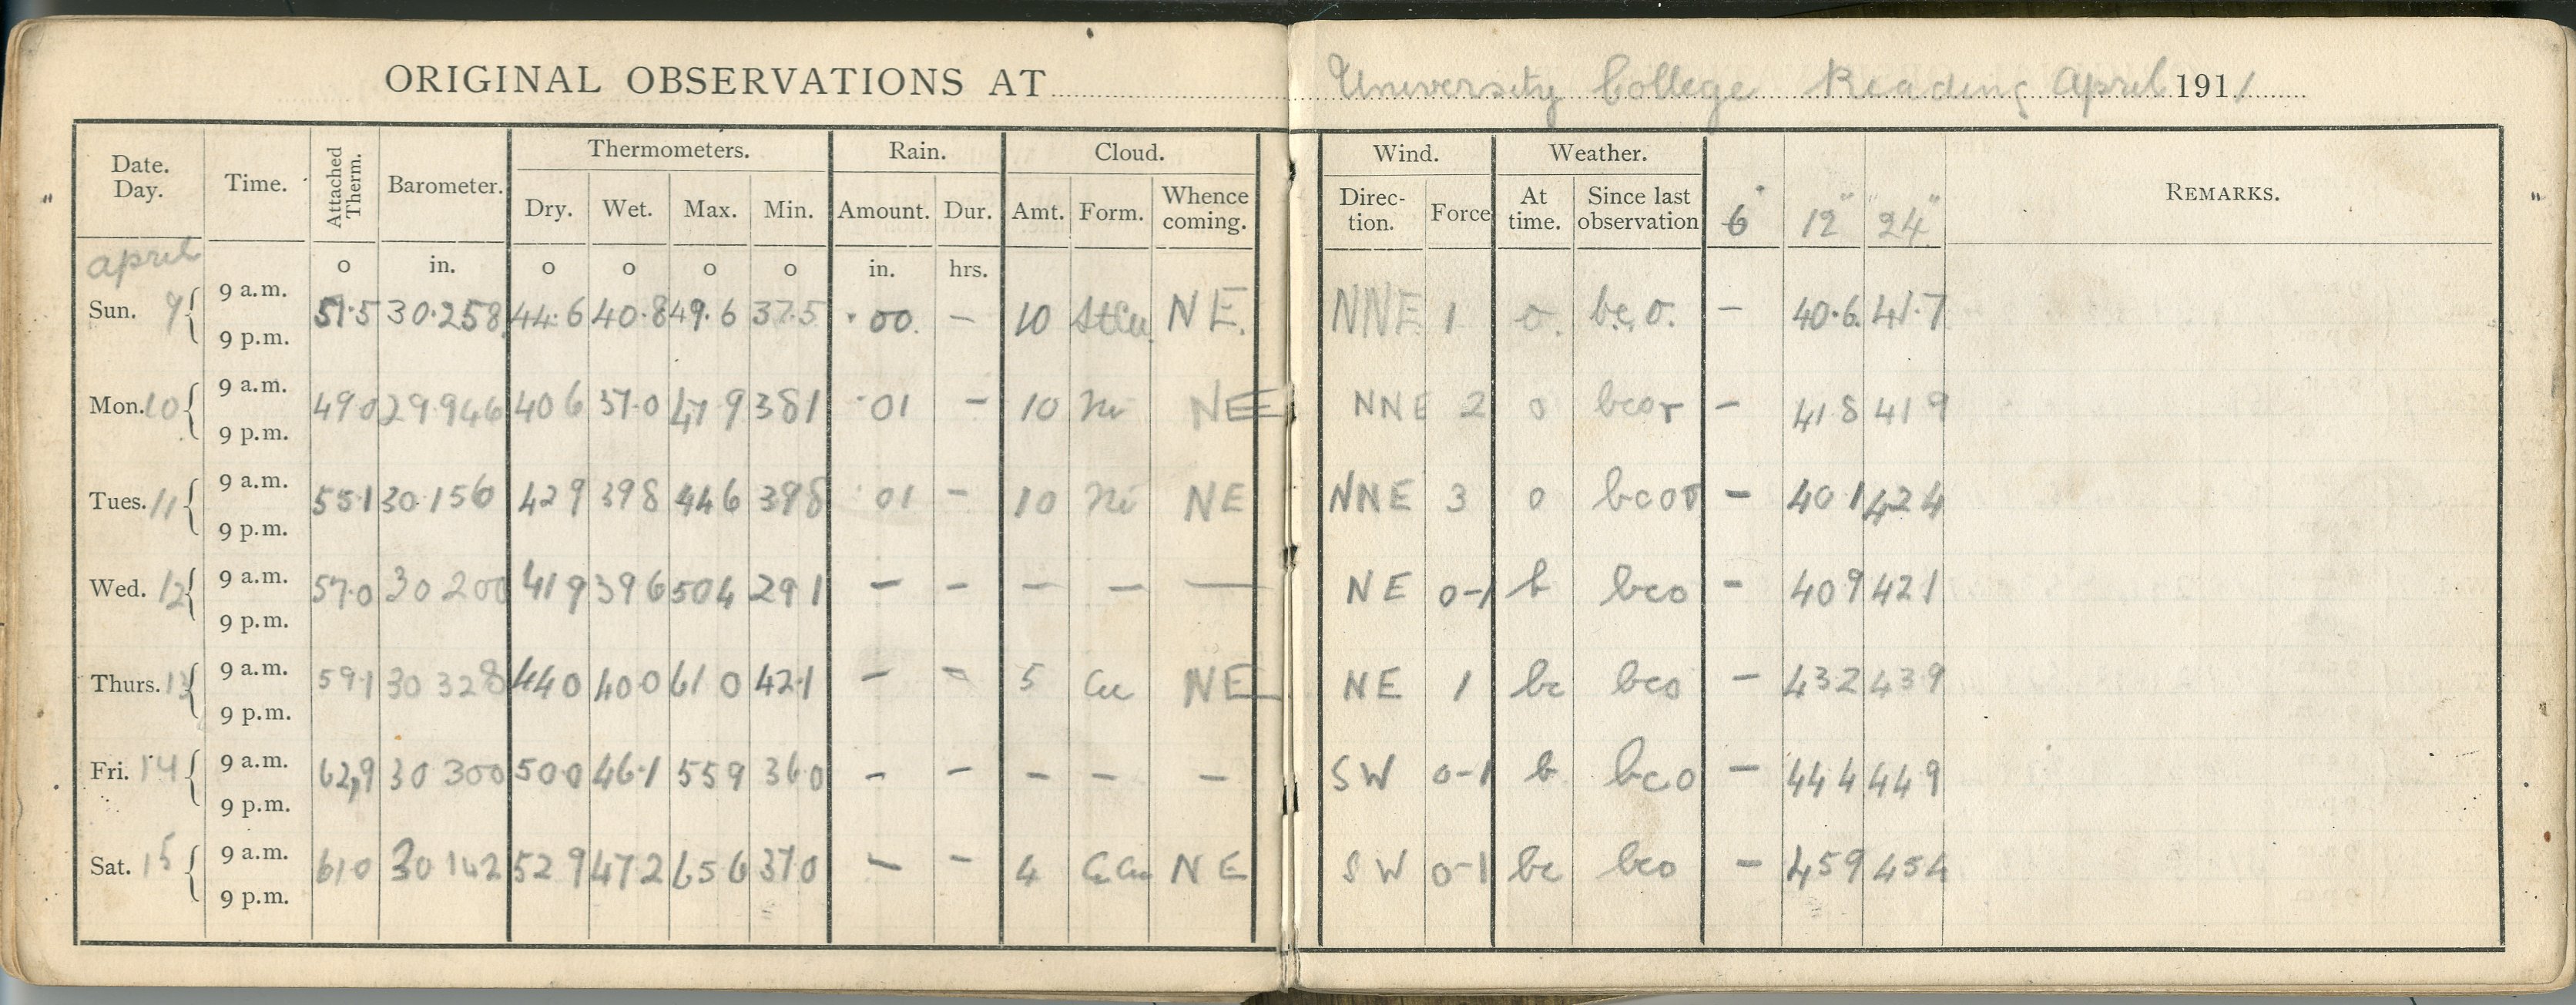 ORIGINAL OBSERVATIONS AT University College Reading April 1911
Date. Day. Time. Attached Therm. Barometer. Thermometers. Rain. Cloud. Wind. Weather. REMARKS.
Dry. Wet. Max. Min. Amount. Dur. Amt. Form. Whence coming. Direc- tion. Force At time. Since last observation 6" 12" 24"
april o in. o o o o in. hrs.
Sun. 9 { 9 a.m. 51.5 30.258 44.6 40.8 49.6 37.5 .00. – 10 StCu NE. NNE 1 o. bc, o. – 40.6 41.7
9 p.m.
Mon. 10 { 9 a.m. 49 0 29.946 40 6 37.0 47 9 38 1 .01 – 10 Ni NE NNE 2 o bcor – 41 8 41 9
9 p.m.
Tues. 11 { 9 a.m. 55.1 30.156 42 9 39 8 44 6 39 8 .01 – 10 Ni NE NNE 3 o bcor – 40 1 42 4
9 p.m.
Wed. 12 { 9 a.m. 57.0 30 200 41 9 39 6 50 4 29 1 – – – – — NE 0-1 b bco – 40 9 42 1
9 p.m.
Thurs. 13 { 9 a.m. 59.1 30 328 44 0 40 0 61 0 42.1 – – 5 Cu NE NE 1 bc bco – 43 2 43 9
9 p.m.
Fri. 14 { 9 a.m. 62,9 30 300 50 0 46.1 55 9 36 0 – – – – – SW 0-1 b bco – 44 4 44 9
9 p.m.
Sat. 15 { 9 a.m. 61 0 30 142 52 9 47 2 65 6 37 0 – – 4 NE SW 0-1 bc bco – 45 9 45 4
9 p.m.